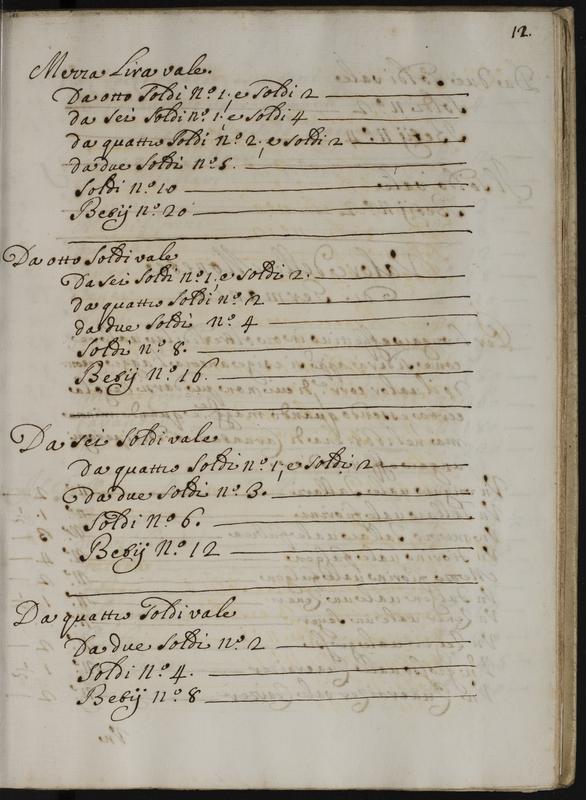 12.
Mezza Lira vale.
Da otto Soldi n.º 1; e Soldi 2
da sei Soldi n.º 1; e Soldi 4
da quattro Soldi n.º 2; e Soldi 2
da due Soldi n.º 5.
Soldi n.º 10
Besij n.º 20
Da otto Soldi vale
Da sei Soldi n.º 1; e Soldi 2.
da quattro Soldi n.º 2
da due Soldi n.º 4
Soldi n.º 8.
Besij n.º 16.
Da sei Soldi vale
da quattro Soldi n.º 1; e Soldi 2
Da due Soldi n.º 3.
Soldi n.º 6.
Besij n.º 12
Da quattro Soldi vale
Da due Soldi n.º 2
Soldi n.º 4.
Besij n.º 8